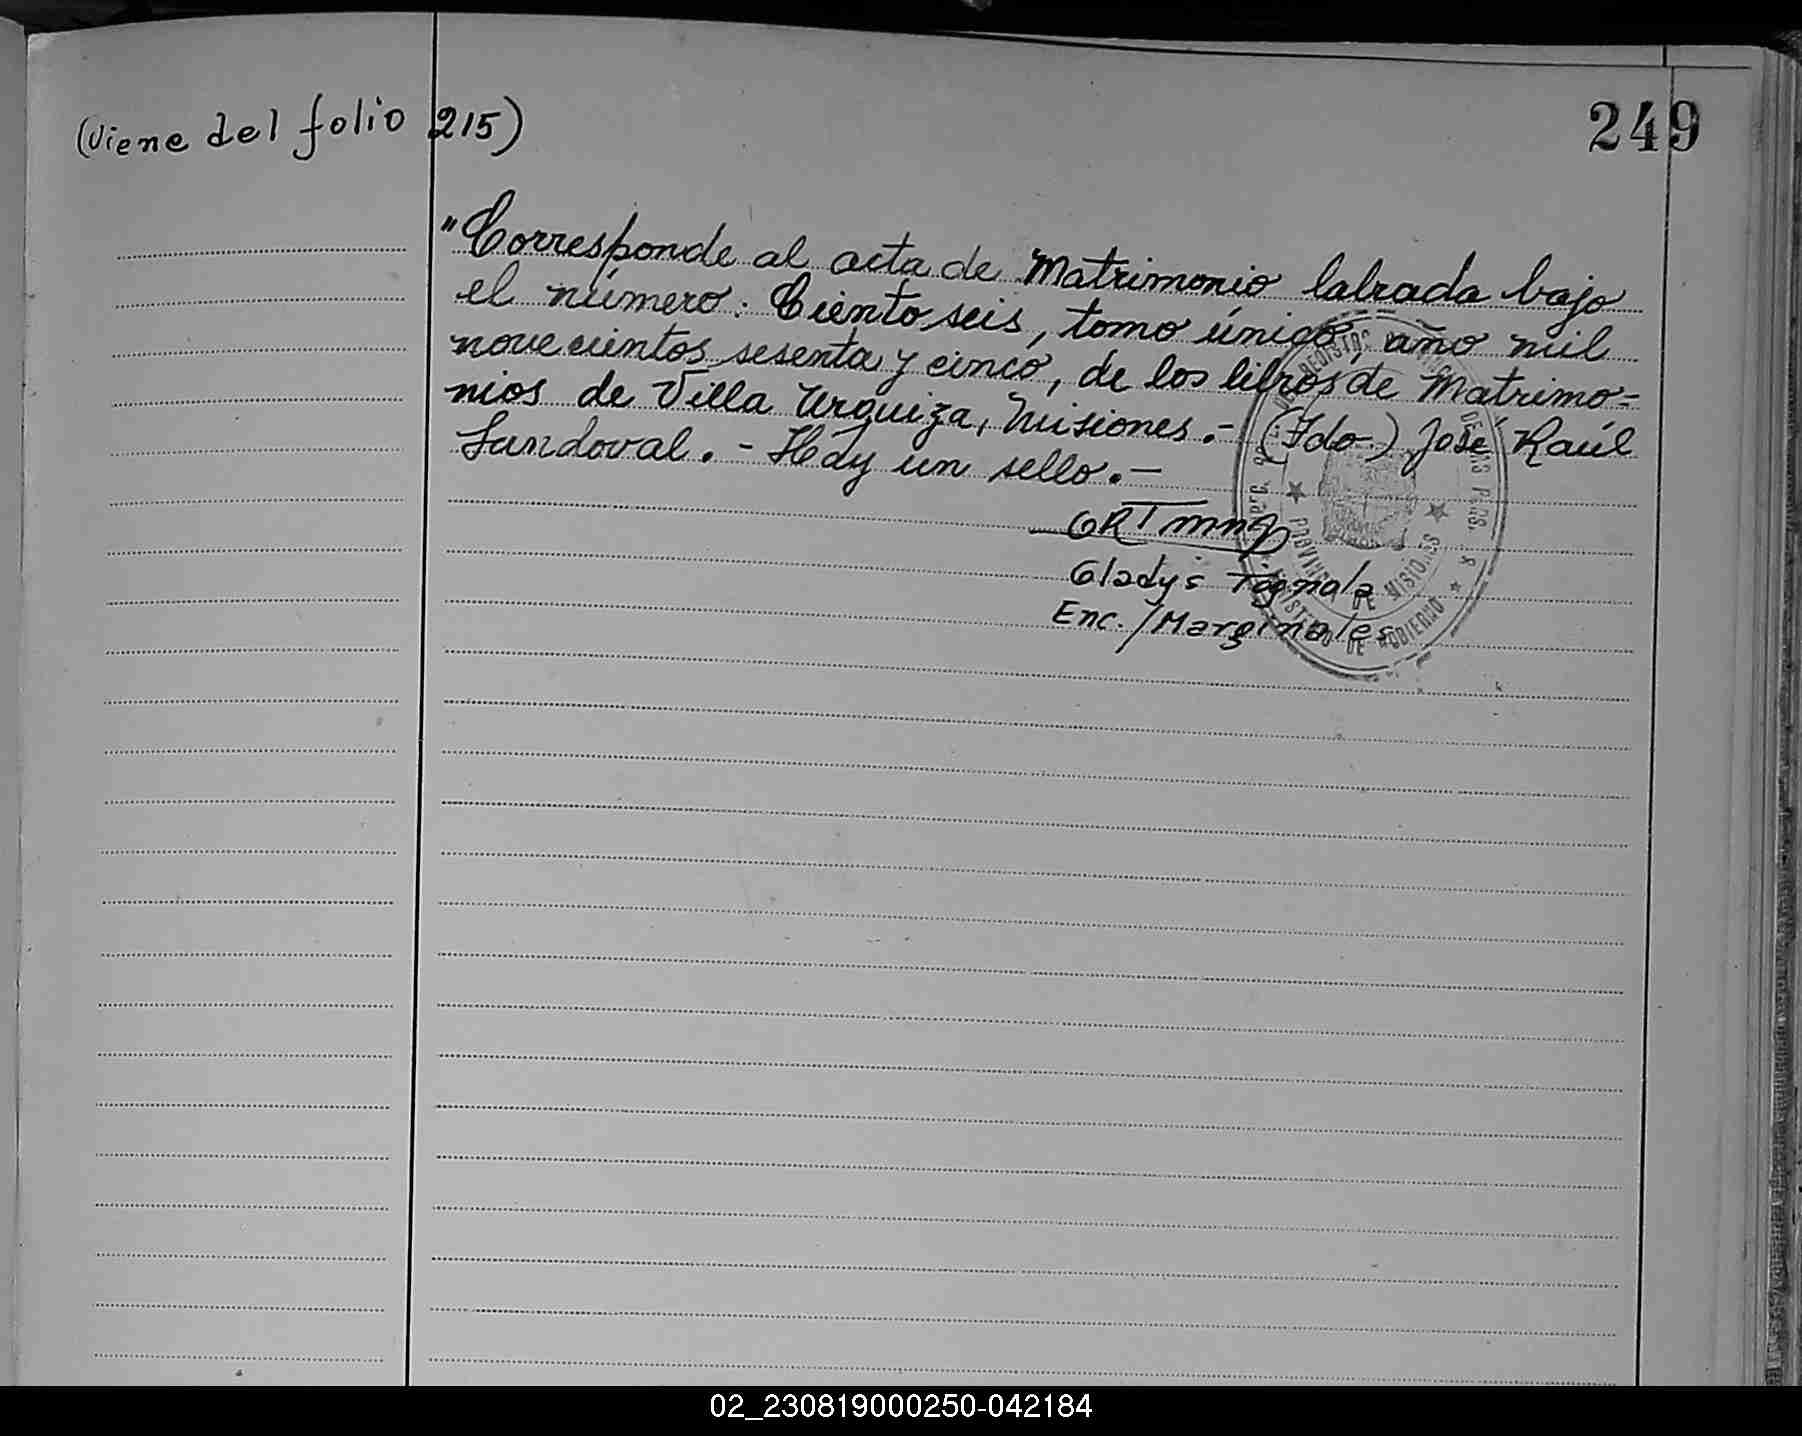 (Viene del folio 215)
249
"Corresponde al acta de Matrimonio labrada bajo
el número: Ciento seis, tomo único, año mil
novecientos sesenta y cinco, de los libros de Matrimo=
nios de Villa Urquiza, Misiones.- (Fdo) José Raúl
Sandoval.- Hay un sello.-
Gladys
Enc./Marginales
PROVINCIA DE MISIONES
MINISTERIO DE GOBIERNO
02_230819000250-042184